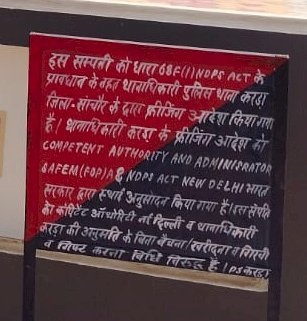 इस सम्पत्ती को धारा 68F(1) NDPS ACT के
प्रावधान के तहत थानाधिकारी पुलिस थाना करड़ा
जिला-सांचौर के द्वारा फ्रीजिंग आदेश किया गया
है। थानाधिकारी करड़ा के फ्रीजिंग आदेश को
COMPETENT AUTHORITY AND ADMINISRATOR
SAFEM(FOP)A & NDPS ACT NEW DELHI भारत
सरकार द्वारा स्थाई अनुमोदन किया गया है। इस संपत्ति
को कॉपिटेंट ऑथोरिटी नई दिल्ली व थानाधिकारी
करड़ा की अनुमति के बिना बेचना/खरीदना व गिरवी
व गिफ्ट करना विधि विरूद्ध है। PS करड़ा